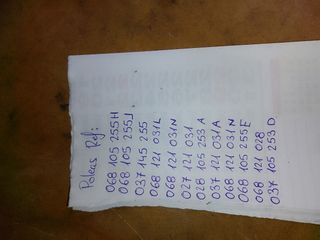 Poleas Ref:
068 105 255 H
068 105 255 J
037 145 255
068 121 031 L
068 121 031 N
027 121 031
028 105 253 A
037 121 031 A
068 121 031 N
068 105 255 E
068 121 028
037 105 253 D